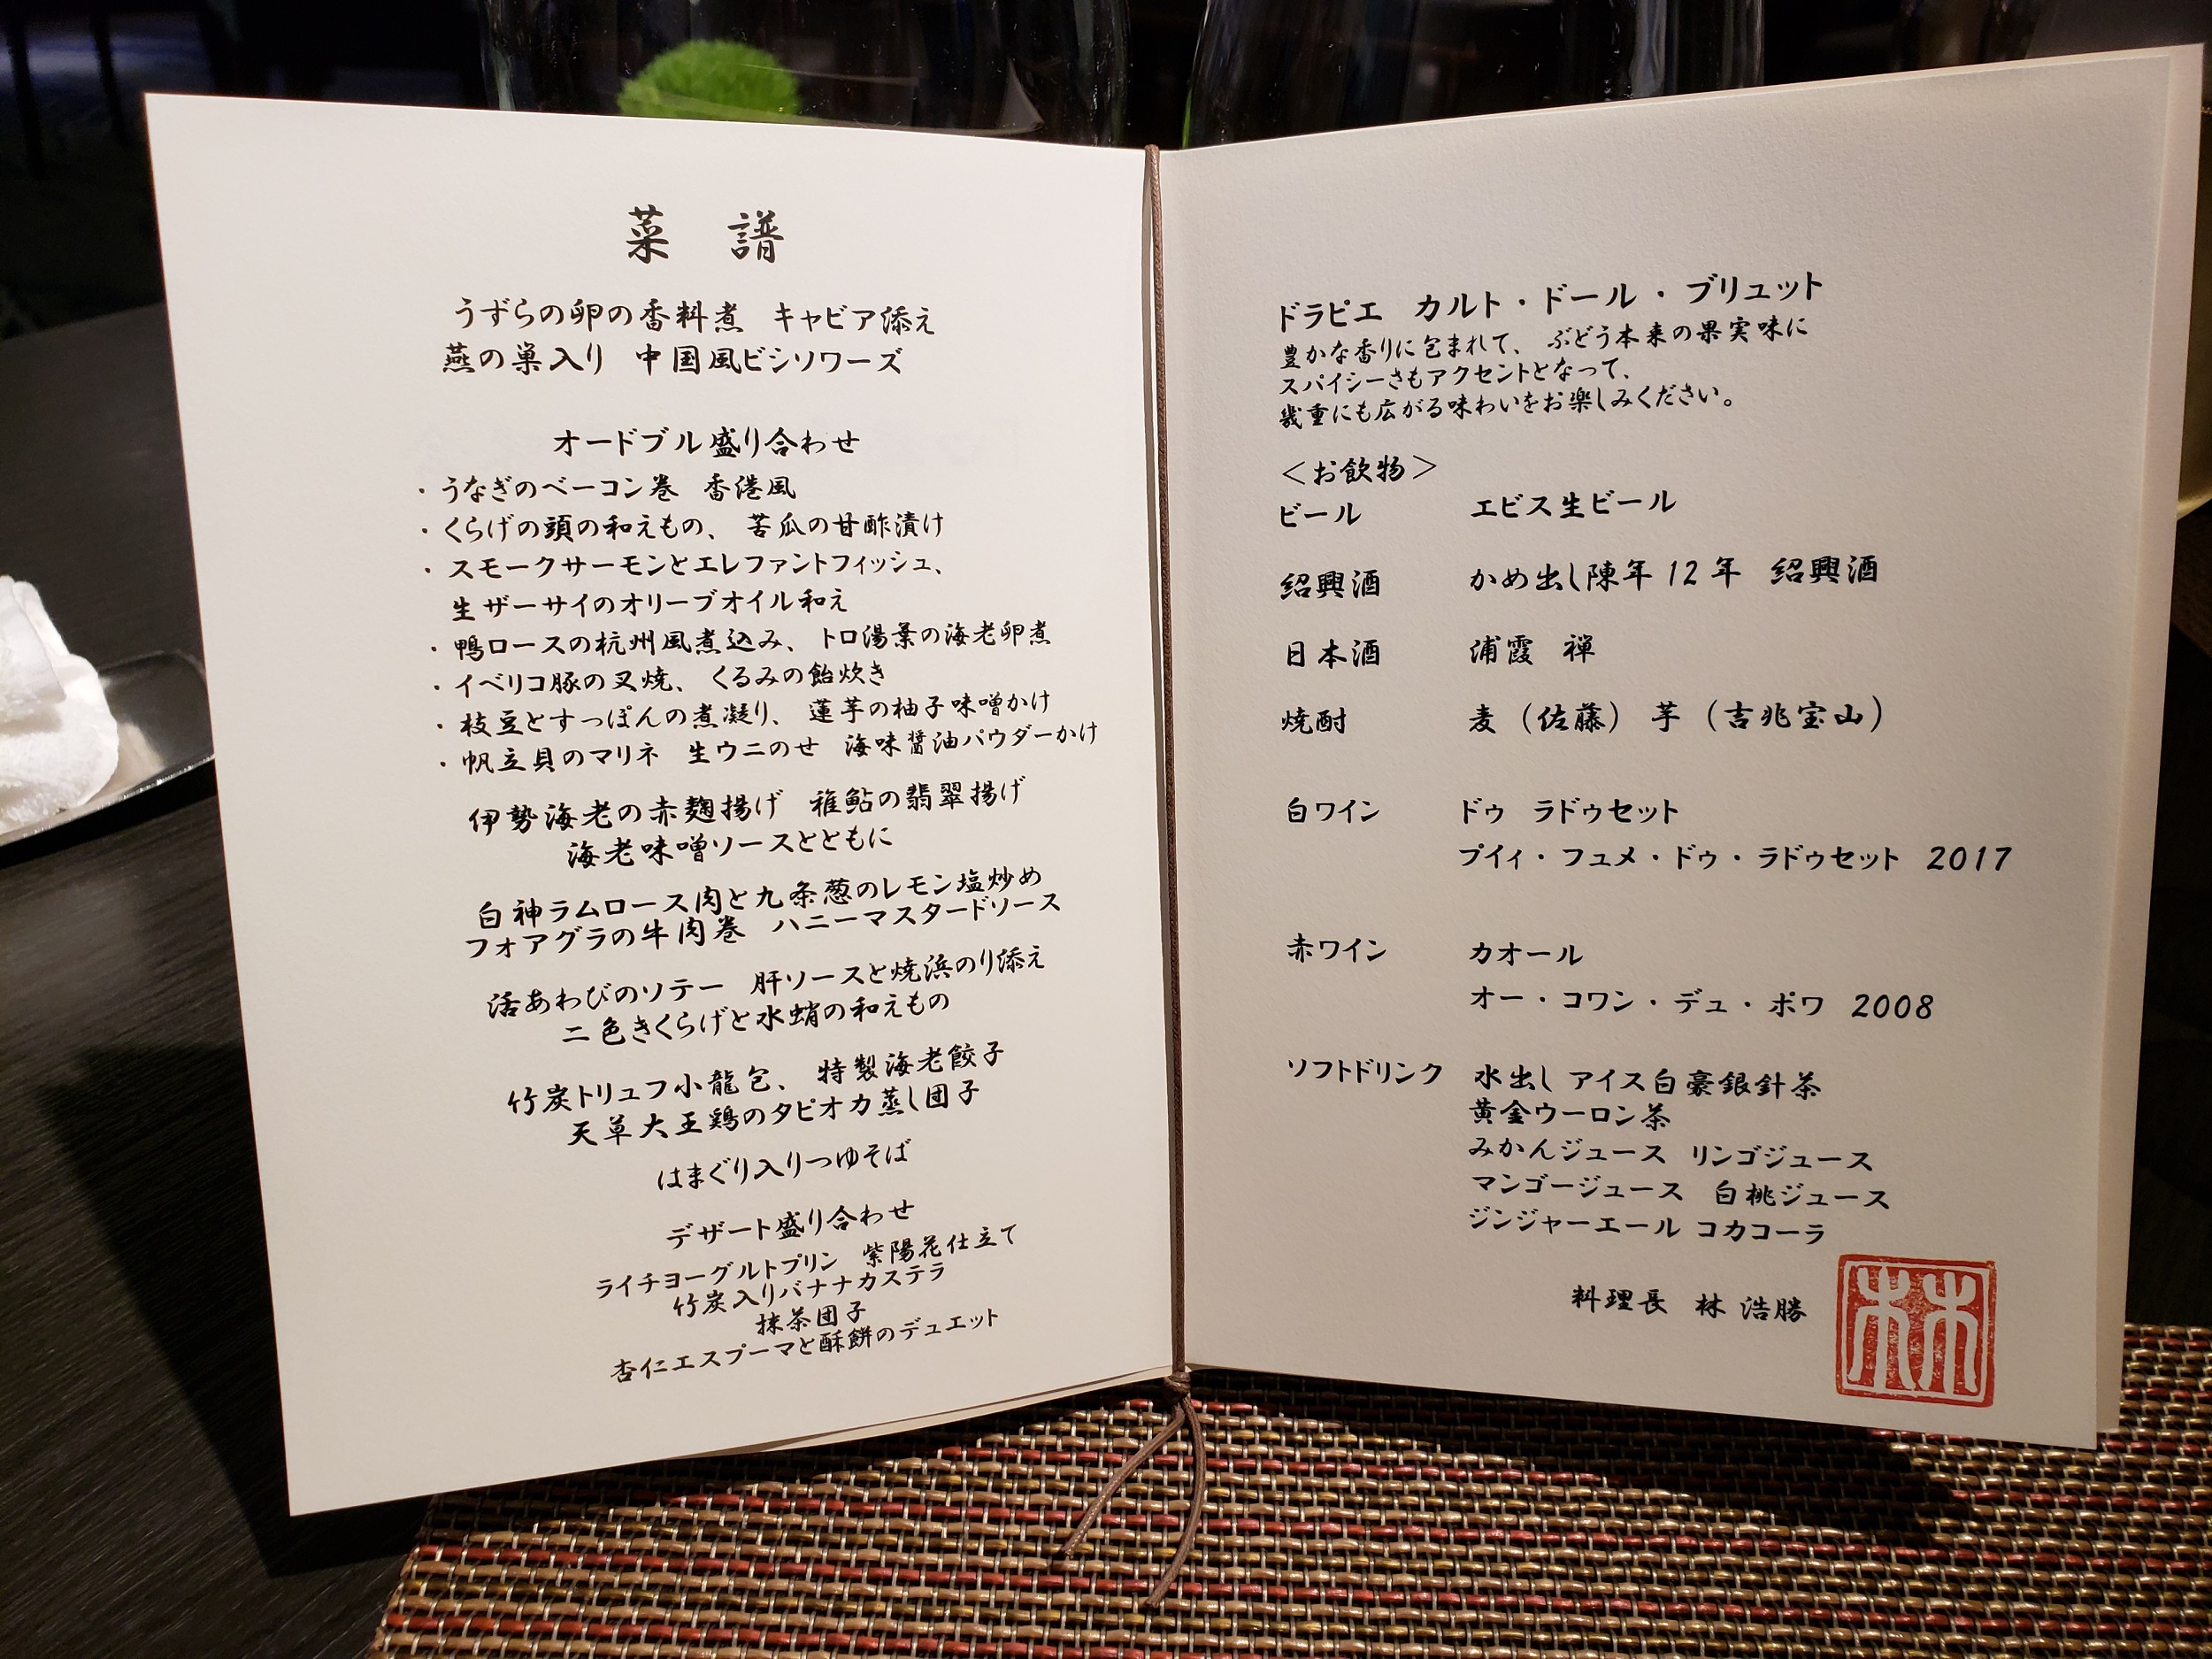 菜 譜
うずらの卵の香料煮 キャビア添え
燕の巣入り 中国風ビシソワーズ
オードブル盛り合わせ
・うなぎのベーコン巻 香港風
・くらげの頭の和えもの、 苦瓜の甘酢漬け
・スモークサーモンとエレファントフィッシュ、
生ザーサイのオリーブオイル和え
・鴨ロースの杭州風煮込み、トロ湯葉の海老卵煮
・イベリコ豚の叉焼、 くるみの飴炊き
・枝豆とすっぽんの煮凝り、 蓮芋の柚子味噌かけ
・帆立貝のマリネ 生ウニのせ 海味醤油パウダーかけ
伊勢海老の赤麹揚げ 稚鮎の翡翠揚げ
海老味噌ソースとともに
白神ラムロース肉と九条葱のレモン塩炒め
フォアグラの牛肉巻 ハニーマスタードソース
活あわびのソテー 肝ソースと焼浜のり添え
二色きくらげと水蛸の和えもの
竹炭トリュフ小龍包、 特製海老餃子
天草大王鶏のタピオカ蒸し団子
はまぐり入りつゆそば
デザート盛り合わせ
ライチヨーグルトプリン 紫陽花仕立て
竹炭入りバナナカステラ
抹茶団子
杏仁エスプーマと酥餅のデュエット
ドラピエ カルト・ドール・ブリュット
豊かな香りに包まれて、 ぶどう本来の果実味に
スパイシーさもアクセントとなって、
幾重にも広がる味わいをお楽しみください。
＜お飲物＞
ビール エビス生ビール
紹興酒 かめ出し陳年12年 紹興酒
日本酒 浦霞 禅
焼酎 麦（佐藤） 芋（吉兆宝山）
白ワイン ドゥ ラドゥセット
プイィ・フュメ・ドゥ・ラドゥセット 2017
赤ワイン カオール
オー・コワン・デュ・ポワ 2008
ソフトドリンク 水出し アイス白豪銀針茶
黄金ウーロン茶
みかんジュース リンゴジュース
マンゴージュース 白桃ジュース
ジンジャーエール コカコーラ
料理長 林 浩勝
林